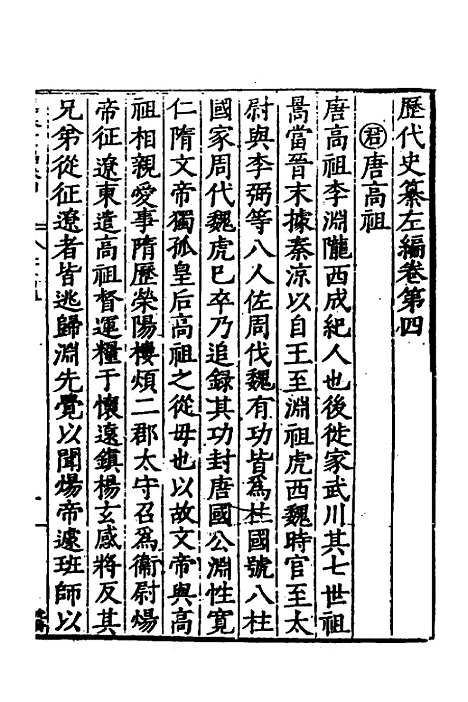 歷代史纂左編卷第四
君唐高祖
唐高祖李淵隴西成紀人也後徙家武川其七世祖
暠當晉末據秦涼以自王至淵祖虎西魏時官至太
尉與李弼等八人佐周伐魏有功皆為柱國號八柱
國家周代魏虎巳卒乃追錄其功封唐國公淵性寬
仁隋文帝獨孤皇后高祖之從母也以故文帝與高
祖相親愛事隋歷滎陽樓煩二郡太守召為衞尉煬
帝征遼東遣高祖督運糧于懷遠鎮楊玄感將反其
兄弟從征遼者皆逃歸淵先覺以聞煬帝遽班師以